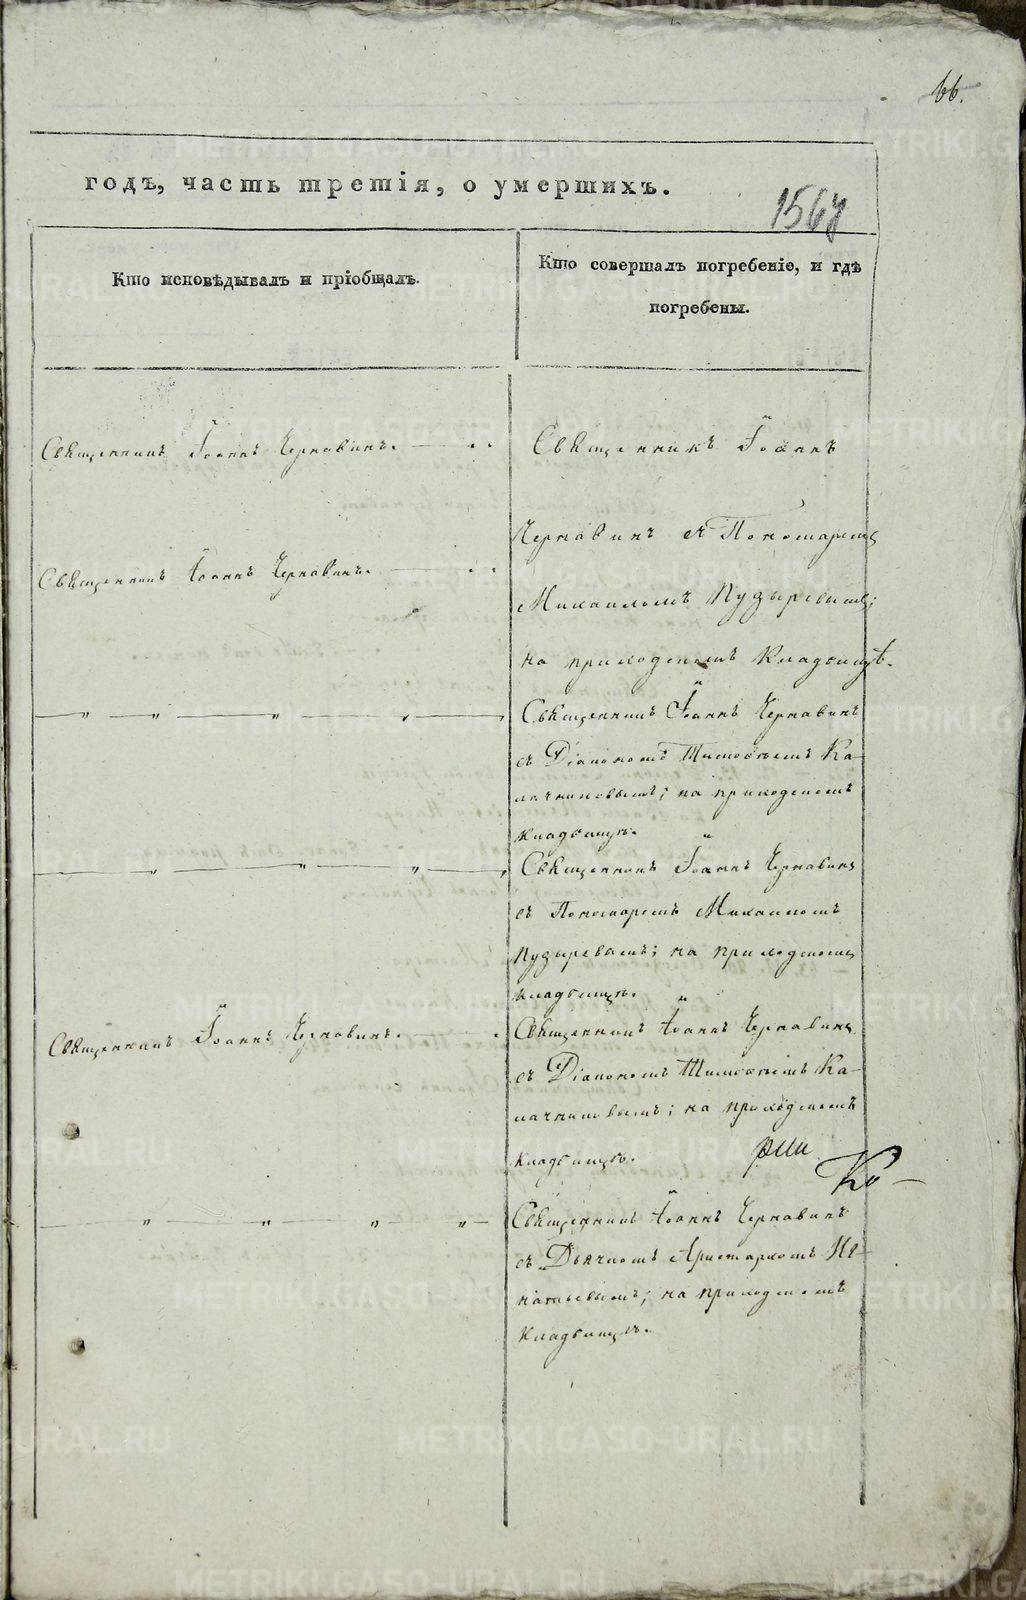 66.
годъ, часть третія, о умершихъ.
Кто исповѣдывалъ и пріобщалъ.
Кто совершалъ погребеніе, и гдѣ
погребены.
Священникъ Іоаннъ Чернавинъ.
Священникъ Іоаннъ
Священникъ Іоаннъ Чернавинъ.
Чернавинъ съ Пономаремъ
Михаиломъ Пузыревымъ;
на приходскомъ кладбищѣ.
Священникъ Іоаннъ Чернавинъ
съ Діакономъ Тимоѳеемъ Ка-
лачниковымъ; на приходскомъ
кладбищѣ.
Священникъ Іоаннъ Чернавинъ
съ Пономаремъ Михаиломъ
Пузыревымъ; на приходскомъ
кладбищѣ.
Священникъ Іоаннъ Чернавинъ.
Священникъ Іоаннъ Чернавинъ
съ Діакономъ Тимоѳеемъ Ка-
лачниковымъ; на приходскомъ
кладбищѣ.
Священникъ Іоаннъ Чернавинъ
съ Дьячкомъ Аристархомъ Иг-
натьевымъ; на приходскомъ
кладбищѣ.
METRIKI.GASO-URAL.RU